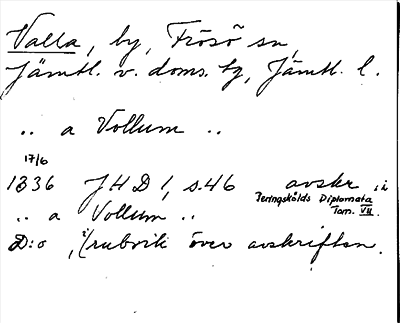 Valla, by, Frösö sn,
Jämtl. v. doms. tg, Jämtl. l.
.. a Vollum ..
17/6
1336 JHD 1, s. 46 avskr. i
Peringskölds Diplomata
Tom. VII.
.. a Vollum ..
D:o, i (rubrik över avskriften.